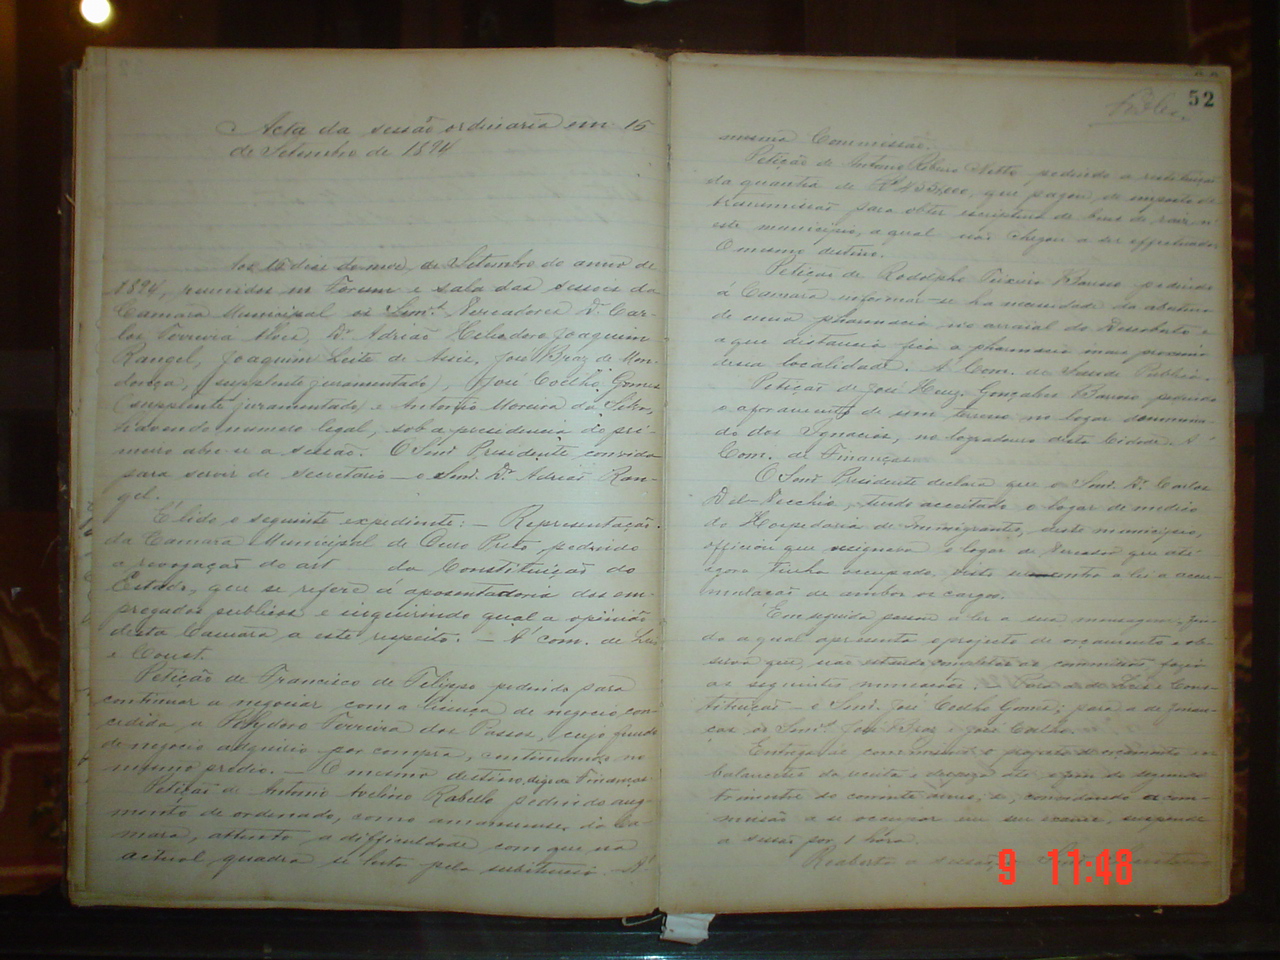 Acta da sessão ordinaria em 15
de Setembro de 1894
Aos 15 dias do mez de Setembro do anno de
1894, reunidos em Forum e sala das sessões da
Camara Municipal os Senrs. Vereadores Dr. Car-
los Ferreira Alves, Dr. Adrião Heliodoro Joaquim
Rangel, Joaquim Leite de Assis, José Braz de Men-
donça, (supplente juramentado), José Coelho Gomes
(supplente juramentado) e Antonio Moreira da Silva,
havendo numero legal, sob a presidencia do pri-
meiro abre-se a sessão. O Snr. Presidente convida
para servir de secretario o Snr. Dr. Adrião Ran-
gel.
É lido o seguinte expediente: — Representação
da Camara Municipal de Ouro Preto, pedindo
a revogação do art da Constituição do
Estado, que se refere á aposentadoria dos em-
pregados publicos e inquirindo qual a opinião
desta Camara a este respeito. — Á com. de Leis
e Const.
Petição de Francisco de Filippo pedindo para
continuar a negociar com a licença de negocio con-
cedida a Polydoro Ferreira dos Passos, cujo
de negocio adquirio por compra, continuando no
mesmo predio. — O mesmo destino, digo de Finanças
Petição de Antonio Avelino Rabello pedindo aug-
mento de ordenado, como amanuense da Ca-
mara, attento a difficuldade com que na
actual quadra se luta pela subsistencia. Á
52
mesma Commissão.
Petição de Antonio Ribeiro Netto, pedindo a restituição
da quantia de que pagou de imposto de
transmissão para obter escriptura de bens de raiz n'
este municipio, a qual não chegou a ser effectuada
O mesmo destino.
Petição de Rodolpho Teixeira Barroso pedindo
á Camara informar-se ha necessidade da abertura
de uma pharmacia no arraial do Descoberto e
a que distancia fica a pharmacia mais proxima
dessa localidade. Á Com. de Saude Publica.
Petição de José Henr. Gonçalves Barroso pedindo
o aforamento de um terreno no logar denomina-
do dos Ignacios, no logradouro desta Cidade. Á
Com. de Finanças
O Snr. Presidente declara que o Snr. Dr. Carlos
Del-Vecchio, tendo acceitado o logar de medico
da Hospedaria de Immigrantes, deste municipio,
officiou que resignava o logar de Vereador que até
agora tinha occupado, visto ser contra a lei a accu-
mulação de ambos os cargos.
Em seguida passou a ler a sua mensagem, fin-
da a qual apresenta o projecto de orçamento e ob-
serva que, não estando completas as commissões, fazia
as seguintes nomeações. — Para a de Leis e Cons-
tituição — o Snr. José Coelho Gomes; para a de Finan-
ças os Snrs. José Braz e José Coelho.
Entrega-se á commissão o projecto de orçamento e
balancetes da receita e despeza até o fim do segundo
trimestre do corrente anno; e, convidando a com-
missão a se occupar em seu exame, suspende
a sessão por 1 hora.
Reaberta a sessão, o Secretario
9 11:48